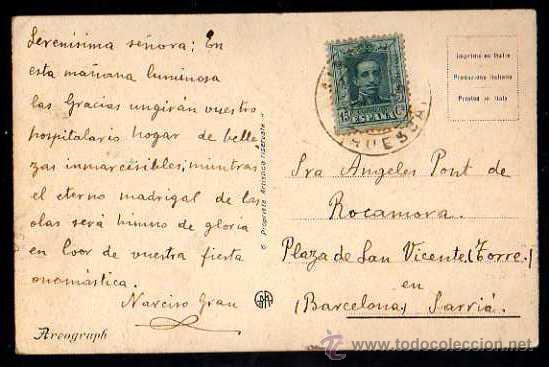 Serenísima señora; En
esta mañana luminosa
las Gracias ungirán vuestro
hospitalario hogar de belle
zas inmarcesibles, mientras
el eterno madrigal de las
olas será himno de gloria
en loor de vuestra fiesta
onomástica.
Narciso Grau
Areograph
© Proprietà Artistica riservata
15 Cs
ESPAÑA
(HUESCA)
Imprimé en Italie
Produzione Italiana
Printed in Italy
Sra Angeles Pont de
Rocamora.
Plaza de San Vicente (Torre)
en
(Barcelona) Sarriá.
todocoleccion
www.todocoleccion.net